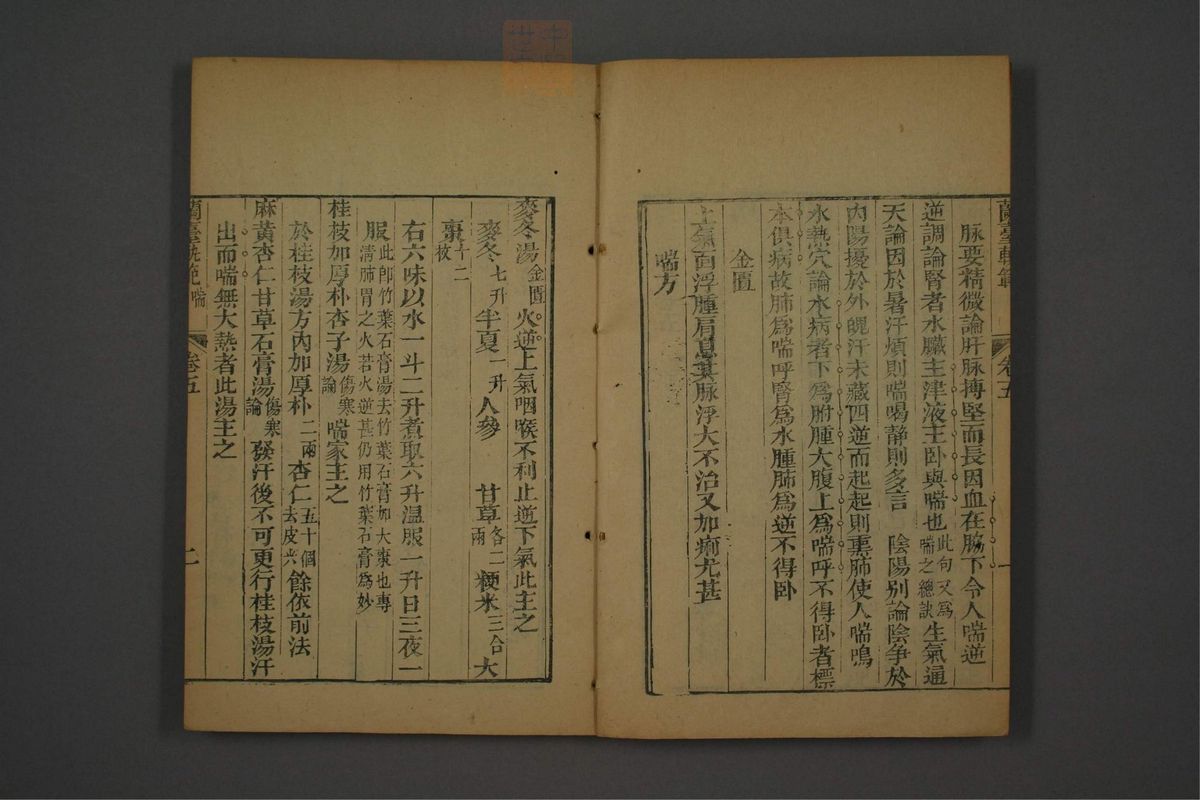 蘭臺軌範 卷五 一
脉要精微論肝脉搏堅而長因血在脇下令人喘逆
逆調論腎者水臟主津液主卧與喘也此句又爲喘之總訣生氣通
天論因於暑汗煩則喘喝静則多言 陰陽别論陰爭於
内陽擾於外魄汗未藏四逆而起起則熏肺使人喘鳴
水熱穴論水病者下爲胕腫大腹上爲喘呼不得卧者標
本俱病故肺爲喘呼腎爲水腫肺爲逆不得卧
金匱
上氣面浮腫肩息其脉浮大不治又加痢尤甚
喘方
麥冬湯金匱火逆上氣咽喉不利止逆下氣此主之
麥冬七升半夏一升人參 甘草各二兩粳米三合大
棗十二枚
右六味以水一斗二升煮取六升温服一升日三夜一
服此卽竹葉石膏湯去竹葉石膏加大棗也專清肺胃之火若火逆甚仍用竹葉石膏爲妙
桂枝加厚朴杏子湯傷寒論喘家主之
於桂枝湯方內加厚朴二兩杏仁五十個去皮尖餘依前法
麻黃杏仁甘草石膏湯傷寒論發汗後不可更行桂枝湯汗
出而喘無大熱者此湯主之
蘭臺軌範 喘 卷五 二